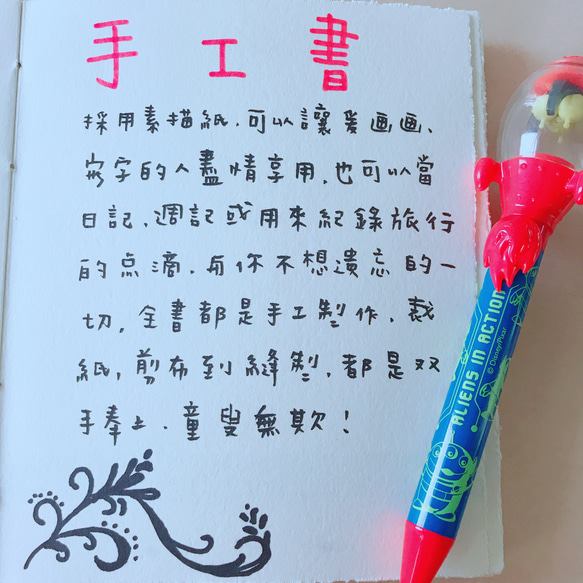 手工書
採用素描紙，可以讓愛画画、
寫字的人盡情享用，也可以當
日記，週記或用來紀錄旅行
的点滴，和你不想遺忘的一
切，全書都是手工製作，裁
紙，剪布到縫製，都是双
手奉上，童叟無欺！
ALIENS IN ACTION
© Disney/Pixar